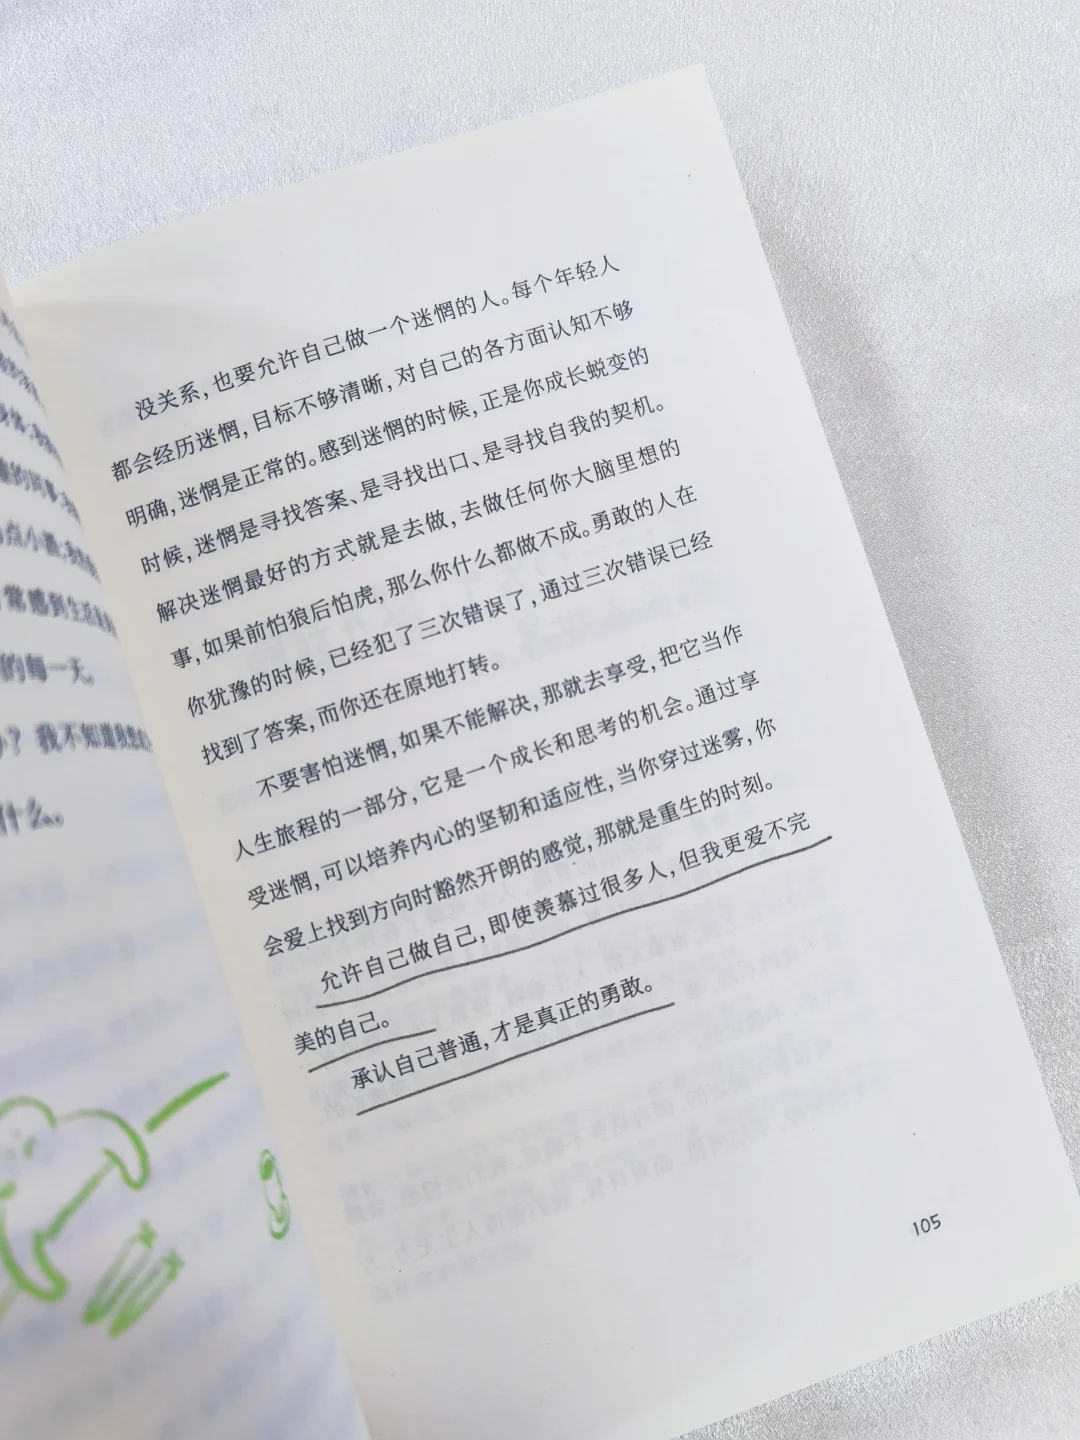 的每一天。
？我不知道
什么。
没关系，也要允许自己做一个迷惘的人。每个年轻人
都会经历迷惘，目标不够清晰，对自己的各方面认知不够
明确，迷惘是正常的。感到迷惘的时候，正是你成长蜕变的
时候，迷惘是寻找答案、是寻找出口、是寻找自我的契机。
解决迷惘最好的方式就是去做，去做任何你大脑里想的
事，如果前怕狼后怕虎，那么你什么都做不成。勇敢的人在
你犹豫的时候，已经犯了三次错误了，通过三次错误已经
找到了答案，而你还在原地打转。
不要害怕迷惘，如果不能解决，那就去享受，把它当作
人生旅程的一部分，它是一个成长和思考的机会。通过享
受迷惘，可以培养内心的坚韧和适应性，当你穿过迷雾，你
会爱上找到方向时豁然开朗的感觉，那就是重生的时刻。
允许自己做自己，即使羡慕过很多人，但我更爱不完
美的自己。
承认自己普通，才是真正的勇敢。
105